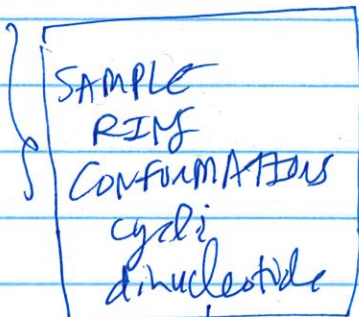 SAMPLE
RING
CONFORMATIONS
cyclic
dinucleotide